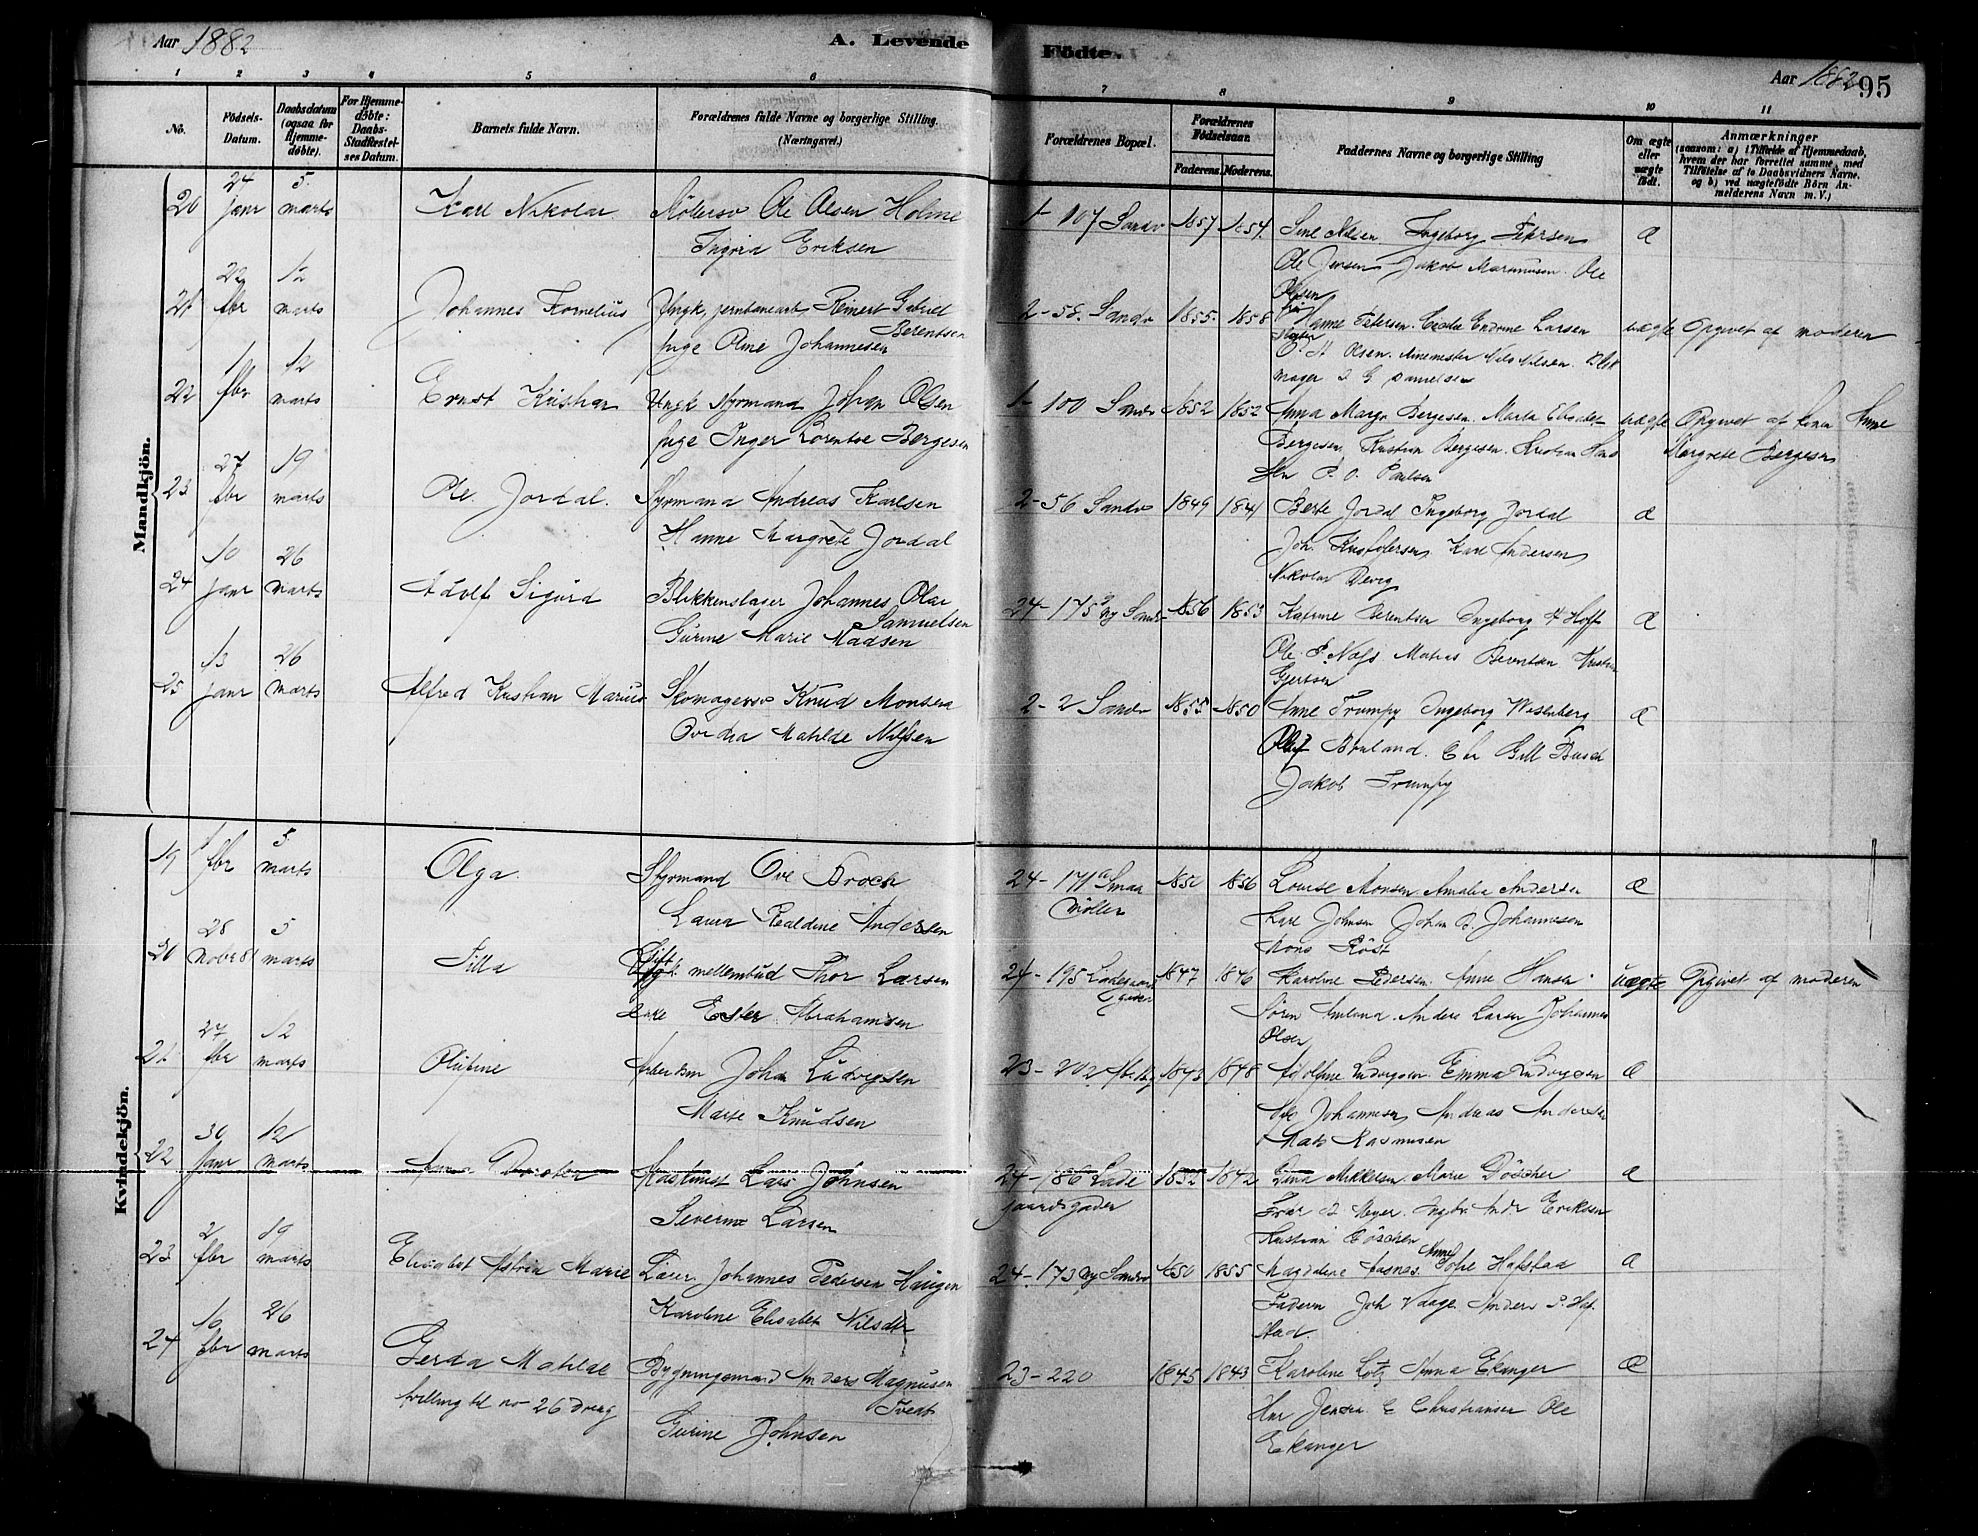 Aar 1882
A. Levende
Födte.
Aar 1882
95
1 2 3 4 5 6 7 8 9 10 11
No.
Födsels-Datum.
Daabsdatum (ogsaa for Hjemme-døbte).
For Hjemme-døbte: Daabs-Stadfæstel-ses Datum.
Barnets fulde Navn.
Forældrenes fulde Navne og borgerlige Stilling. (Næringsvei.)
Forældrenes Bopæl.
Forældrenes Födselsaar.
Faderens. Moderens.
Faddernes Navne og borgerlige Stilling
Om ægte eller uægte født.
Anmærkninger
(saasom: a) i Tilfælde af Hjemmedaab, hvem der har forrettet samme, med Tilføielse af to Daabsvidners Navne. og b) ved uægtefødte Börn An-melderens Navn m. V.)
Mandkjön.
20 24 janr 5 marts Karl Nikolai Ole Olsen Holme
Ingvia Eriksen
1- 107 Sandv 1857 1854 Sine Nilsen Ingeborg Petersen Æ
Ole Jensen Jakob Marmusen Ole
Olsen
21 22 fbr 12 marts Johannes Kornelius Ungk, jernbanearb, Reinert Gabriel
Berentsen
pige Oline Johannesen
2- 58. Sandv 1855. 1858 Hanne Petersen. Endrine Larsen uægte Opgivet af moderen
Olsen. Minemester Nils Nilsen. Blik
mager I G Danielsen
22 12 fbr 12 marts Ernst Kristian Ungk Styrmand Johan Olsen
pige Inger Lorentse Bergesen
1- 100 Sandv 1852 1852 Anna Margr Bergesen. Marta Elisabet uægte Opgivet af Anne
Bergesen, Kristian Bergesen. Kristian Hans Margrete Bergesen
P. O. Paulsen
23 27 fbr 19 marts Ole Jordal. Styrmand Andreas Karlsen
Hanne Margrete Jordal
2- 56 Sandv 1849 1841 Berte Jordal Ingeborg Jordal Æ
Joh. Kristofersen, Karl Andersen
Nikolai Devig
24 10 janr 26 marts Adolf Sigurd Blikkenslager Johannes Olai
Samuelsen
Gurine Marie Madsen
24- 175 Ny Sandv 1856 1853 Katrine Berentsen Ingeborg Hoff Æ
Ole P. Næss Matias Berentsen Kristian
Gjertsen
25 13 janr 26 marts Alfred Kristian Marius Skomagersv Knud Monsen
Ovedia Matilde Nilsen
2- 2 Sandv 1855 1850 Anne Trumpy Ingeborg Wesenberg Æ
Bruland. Gill Busch
Jakob Trumpy
Kvindekjön.
19 1 fbr 5 marts Olga. Styrmand Ove Broch
Laura Realdine Andersen
24- 171 Smaa 1856 Louise Monsen Amalia Andersen Æ
Møllen Karl Johnsen Johan J. Johannesen
Mons Röst
20 28 novbr 81 5 marts Silla Gift mellembud Thor Larsen
enke Ester Abrahamsen
24- 195 Ladegaards 1847 1846 Karoline Pedersen. Anne Hansen uægte Opgivet af moderen
gaden Sören Anders Larsen Johannes
Olsen
21 27 fbr 12 marts Olufine Arbeidsm Johan Ludvigsen
Marte Knudsen
23- 202 1843 1848 Adolfine Ludvigsen. Emma Ludvigsen Æ
Ole Johannesen, Andreas Andersen
Mads Rasmusen
22 30 janr 12 marts Anna Dorotea Maskinist Lars Johnsen
Severine Larsen
24- 186 Lade 1852 1842 Lina Mikkelsen. Marie Döscher Æ
gaardsgaden Meyer. Eriksen
Kristian Döscher
23 2 fbr 19 marts Elisabet Astria Marie Lærer Johannes Pedersen Haugen
Karoline Elisabet Nilsdtr
24- 173 Ny Sandv 1850 1855 Magdalene Aasnes. Anne Sofie Hafstad Æ
Faderen Joh Vaage Anders P. Haf
stad.
24 16 fbr 26 marts Gerda Matilde Bygningsmand Anders Magnusen
Tveit
tvilling til no 26 dreng Gurine Johnsen
23- 220 1845 1843 Karoline Lotz Anna Ekanger Æ
Jensen E Christiansen Ole
Ekanger